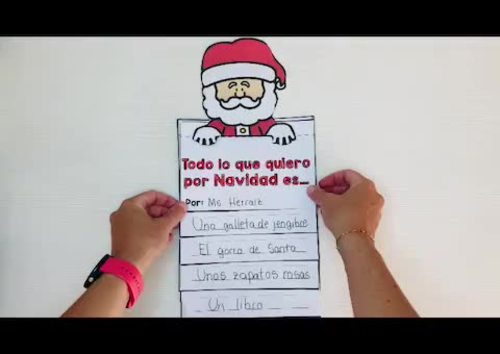 Todo lo que quiero
por Navidad es...
Por: Ms. Herrara
Una galleta de jengibre
El gorro de Santa
Unos zapatos rosas
Un libro